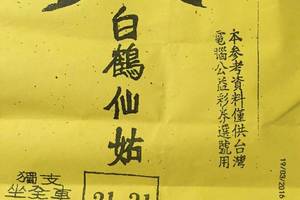 白鶴仙姑
本參考資料僅供台灣
電腦公益彩券選號用
19/03/2016
獨支
坐全車
21 31